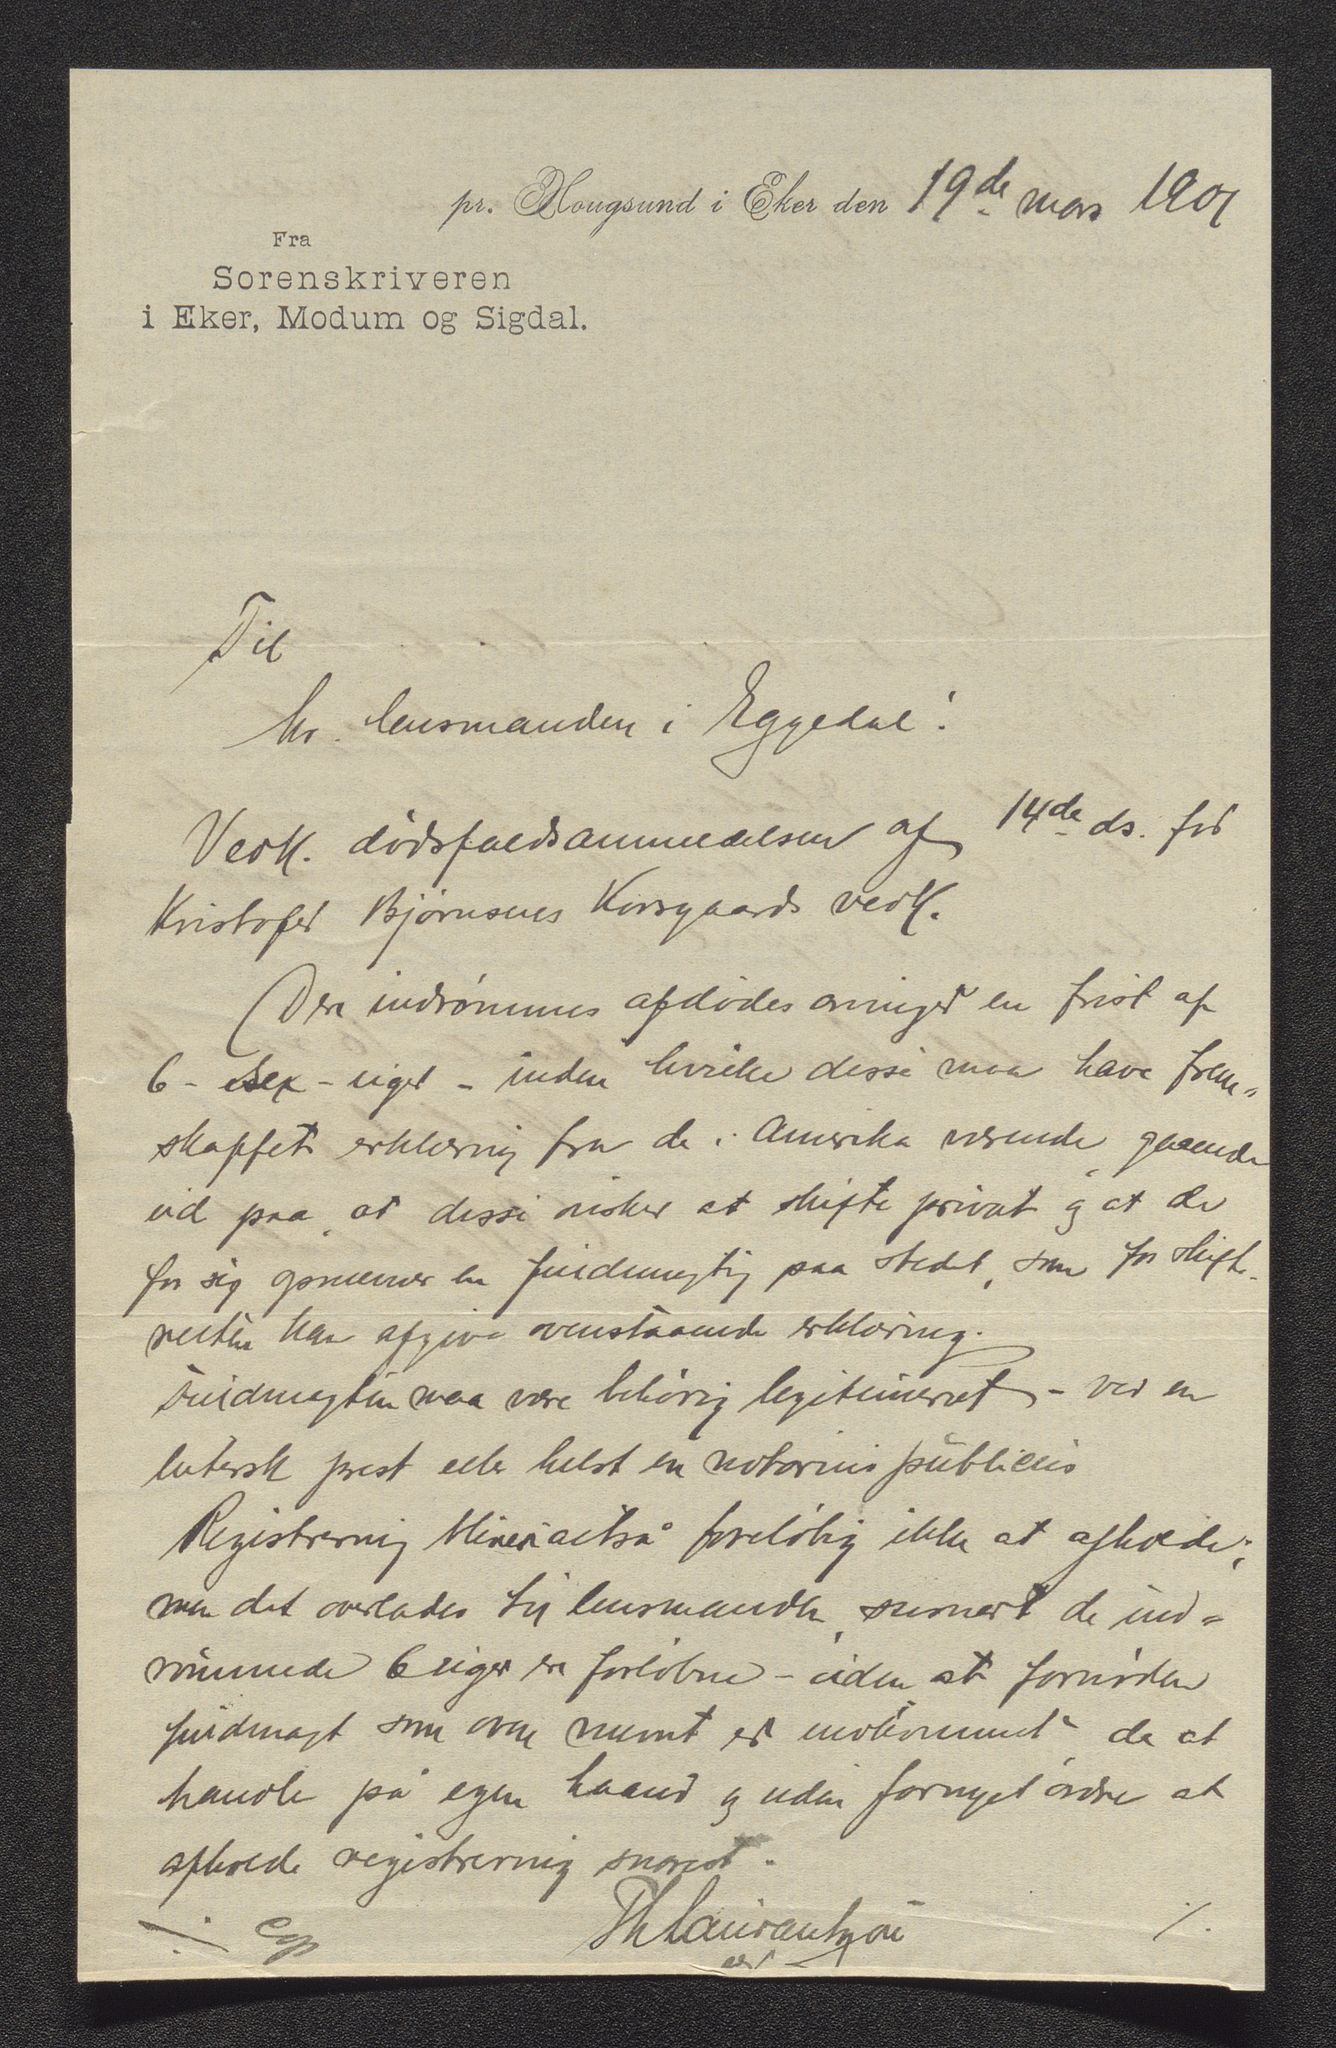 pr. Hougsund i Eker den 19de mars 1901
Fra
Sorenskriveren
i Eker, Modum og Sigdal.
Til
hr. lensmanden i Eggedal!
Vedk. dødsfaldsanmeldelsen af 14de ds. for
Kristofer Bjørnsens Korsgaards vedk.
Der indrømmes afdødes arvinger en frist af
6 - sex - uger - inden hvilke disse maa have frem-
skaffet erklæring fra de i Amerika værende, gaaende
ud paa, at disse ønsker at skifte privat og at de
for sig opnævner en fuldmægtig paa stedet, som for skifte-
retten kan afgive ovenstaaende erklæring.
Fuldmagten maa være behørig legitimeret - ved en
lutersk prest eller helst en notarius publicus
Registrering bliver altså foreløbig ikke at afholde;
men det overlades til lensmanden, snarest de ind-
rømmede 6 uger er forløbne - uden at fornøden
fuldmagt som oven nævnt er indkommet da at
handle på egen haand og uden fornyet ordre at
afholde registrering snarest.
Th Laurantzon